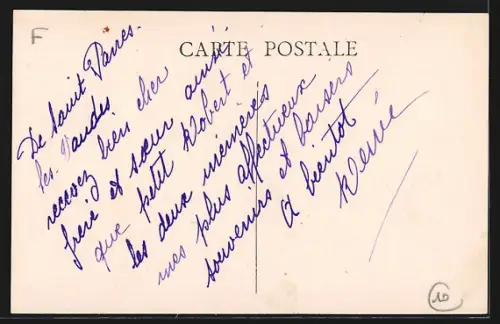 F
CARTE POSTALE
De Saint Parres-
les Vaudes
recevez bien cher
frère et sœur ainsi
que petit Robert et
les deux mémères
mes plus affectueux
souvenirs et baisers
A bientôt
Renée
10